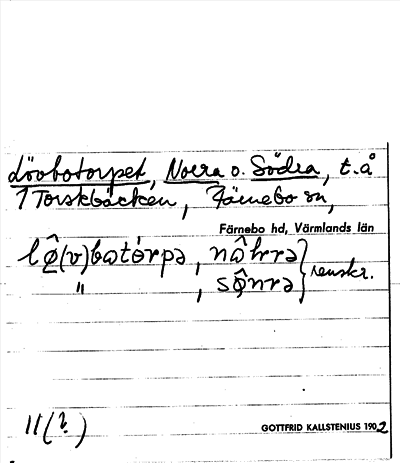 Lövbotorpet, Norra o. Södra, t. å
1 Torskbäcken, Färnebo sn,
Färnebo hd, Värmlands län
lø̂(v)batórpə, nôhrrə } renskr.
" , sø̂nrə
11(?)
GOTTFRID KALLSTENIUS 1902